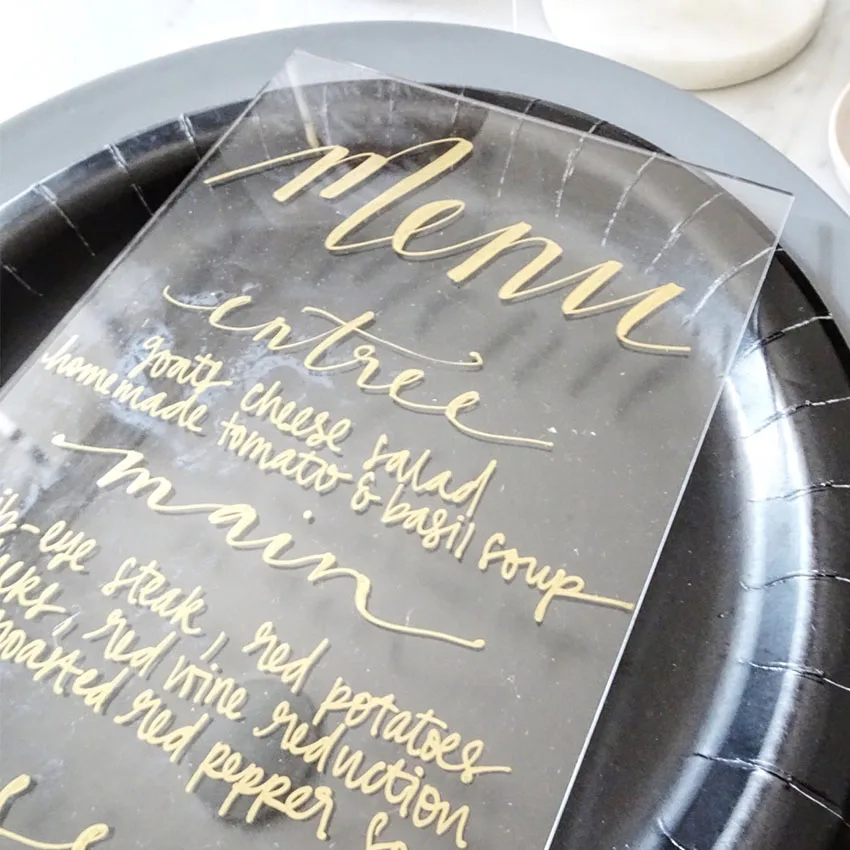 Menu
entrée
goats cheese salad
homemade tomato & basil soup
main
steak, red potatoes
red wine reduction
roasted red pepper